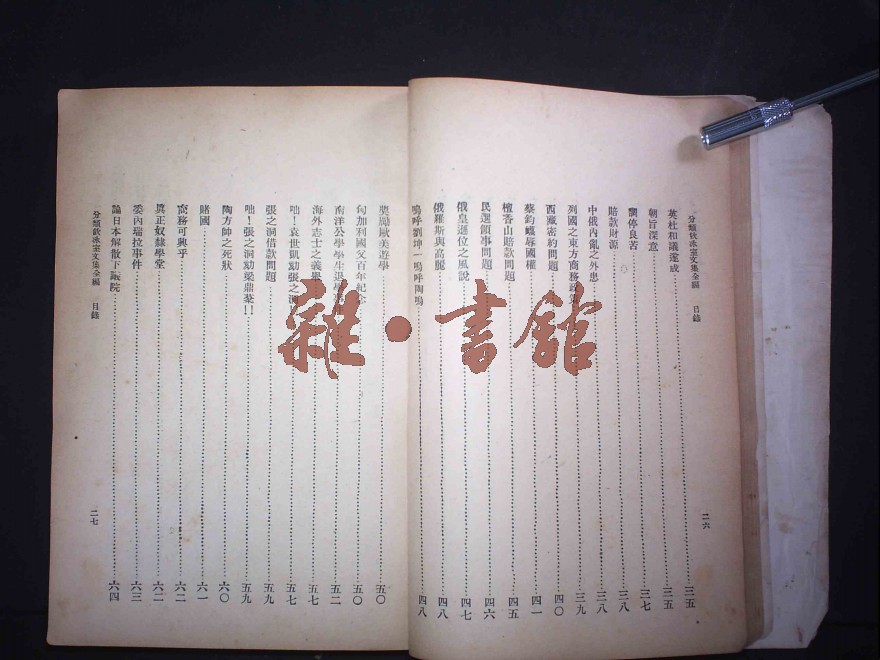 分類飲冰室文集全編 目錄 二六
英杜和議遂成 三五
朝旨深意 三五
調停良苦 三七
賠款財源 三八
中俄內亂之外患 三八
列國之東方商務政策 三九
西藏密約問題 四〇
蔡鈞蠛辱國權 四一
檀香山賠款問題 四五
民選領事問題 四六
俄皇遜位之風說 四七
俄羅斯與高麗 四八
嗚呼劉坤一嗚呼陶模 四八
獎勵歐美遊學 五〇
匈加利國父百年紀念 五〇
南洋公學學生退學 五二
海外志士之義舉 五七
咄!袁世凱劾張之洞 五七
張之洞借款問題 五九
咄!張之洞劾梁鼎棻!! 五九
陶方帥之死狀 六〇
賭國 六一
商務可興乎 六二
眞正奴隸學堂 六二
委內瑞拉事件 六三
論日本解散下議院 六四
分類飲冰室文集全編 目錄 二七
雜·書館